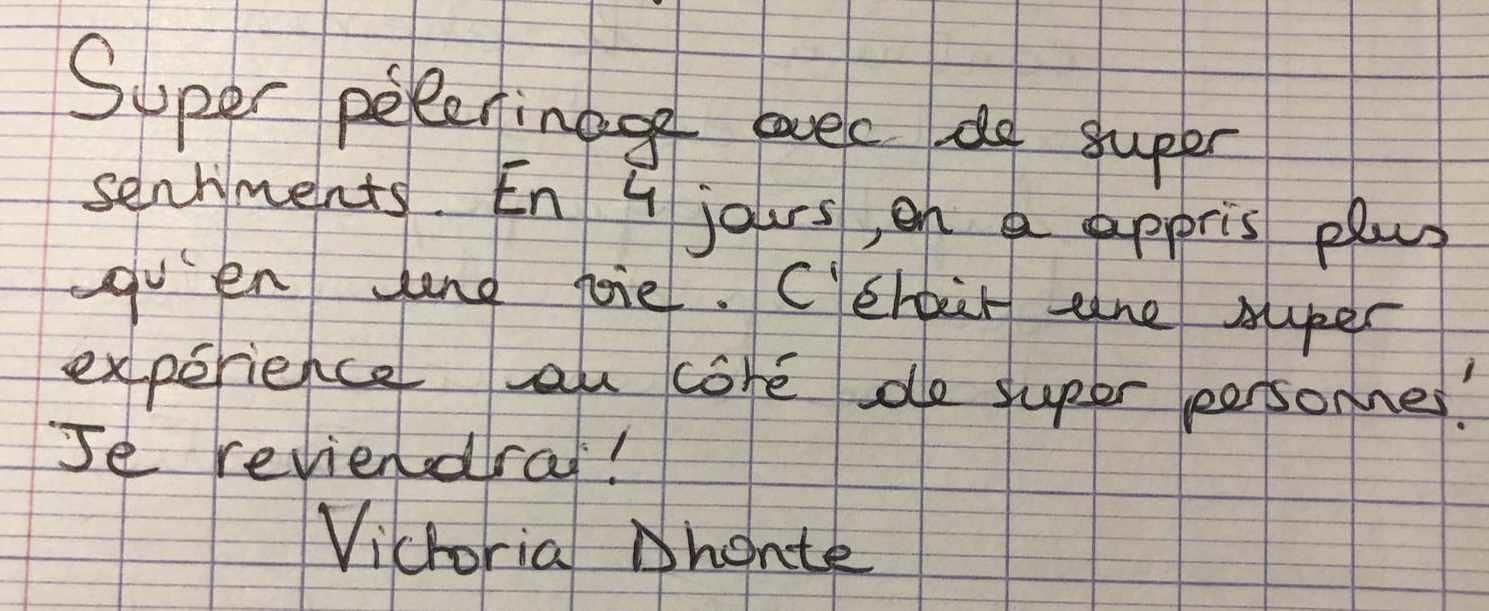 Super pélerinage avec de super
sentiments. En 4 jours, on a appris plus
qu'en une vie. C'était une super
expérience au côté de super personnes!
Je reviendrai!
Victoria Dhonte